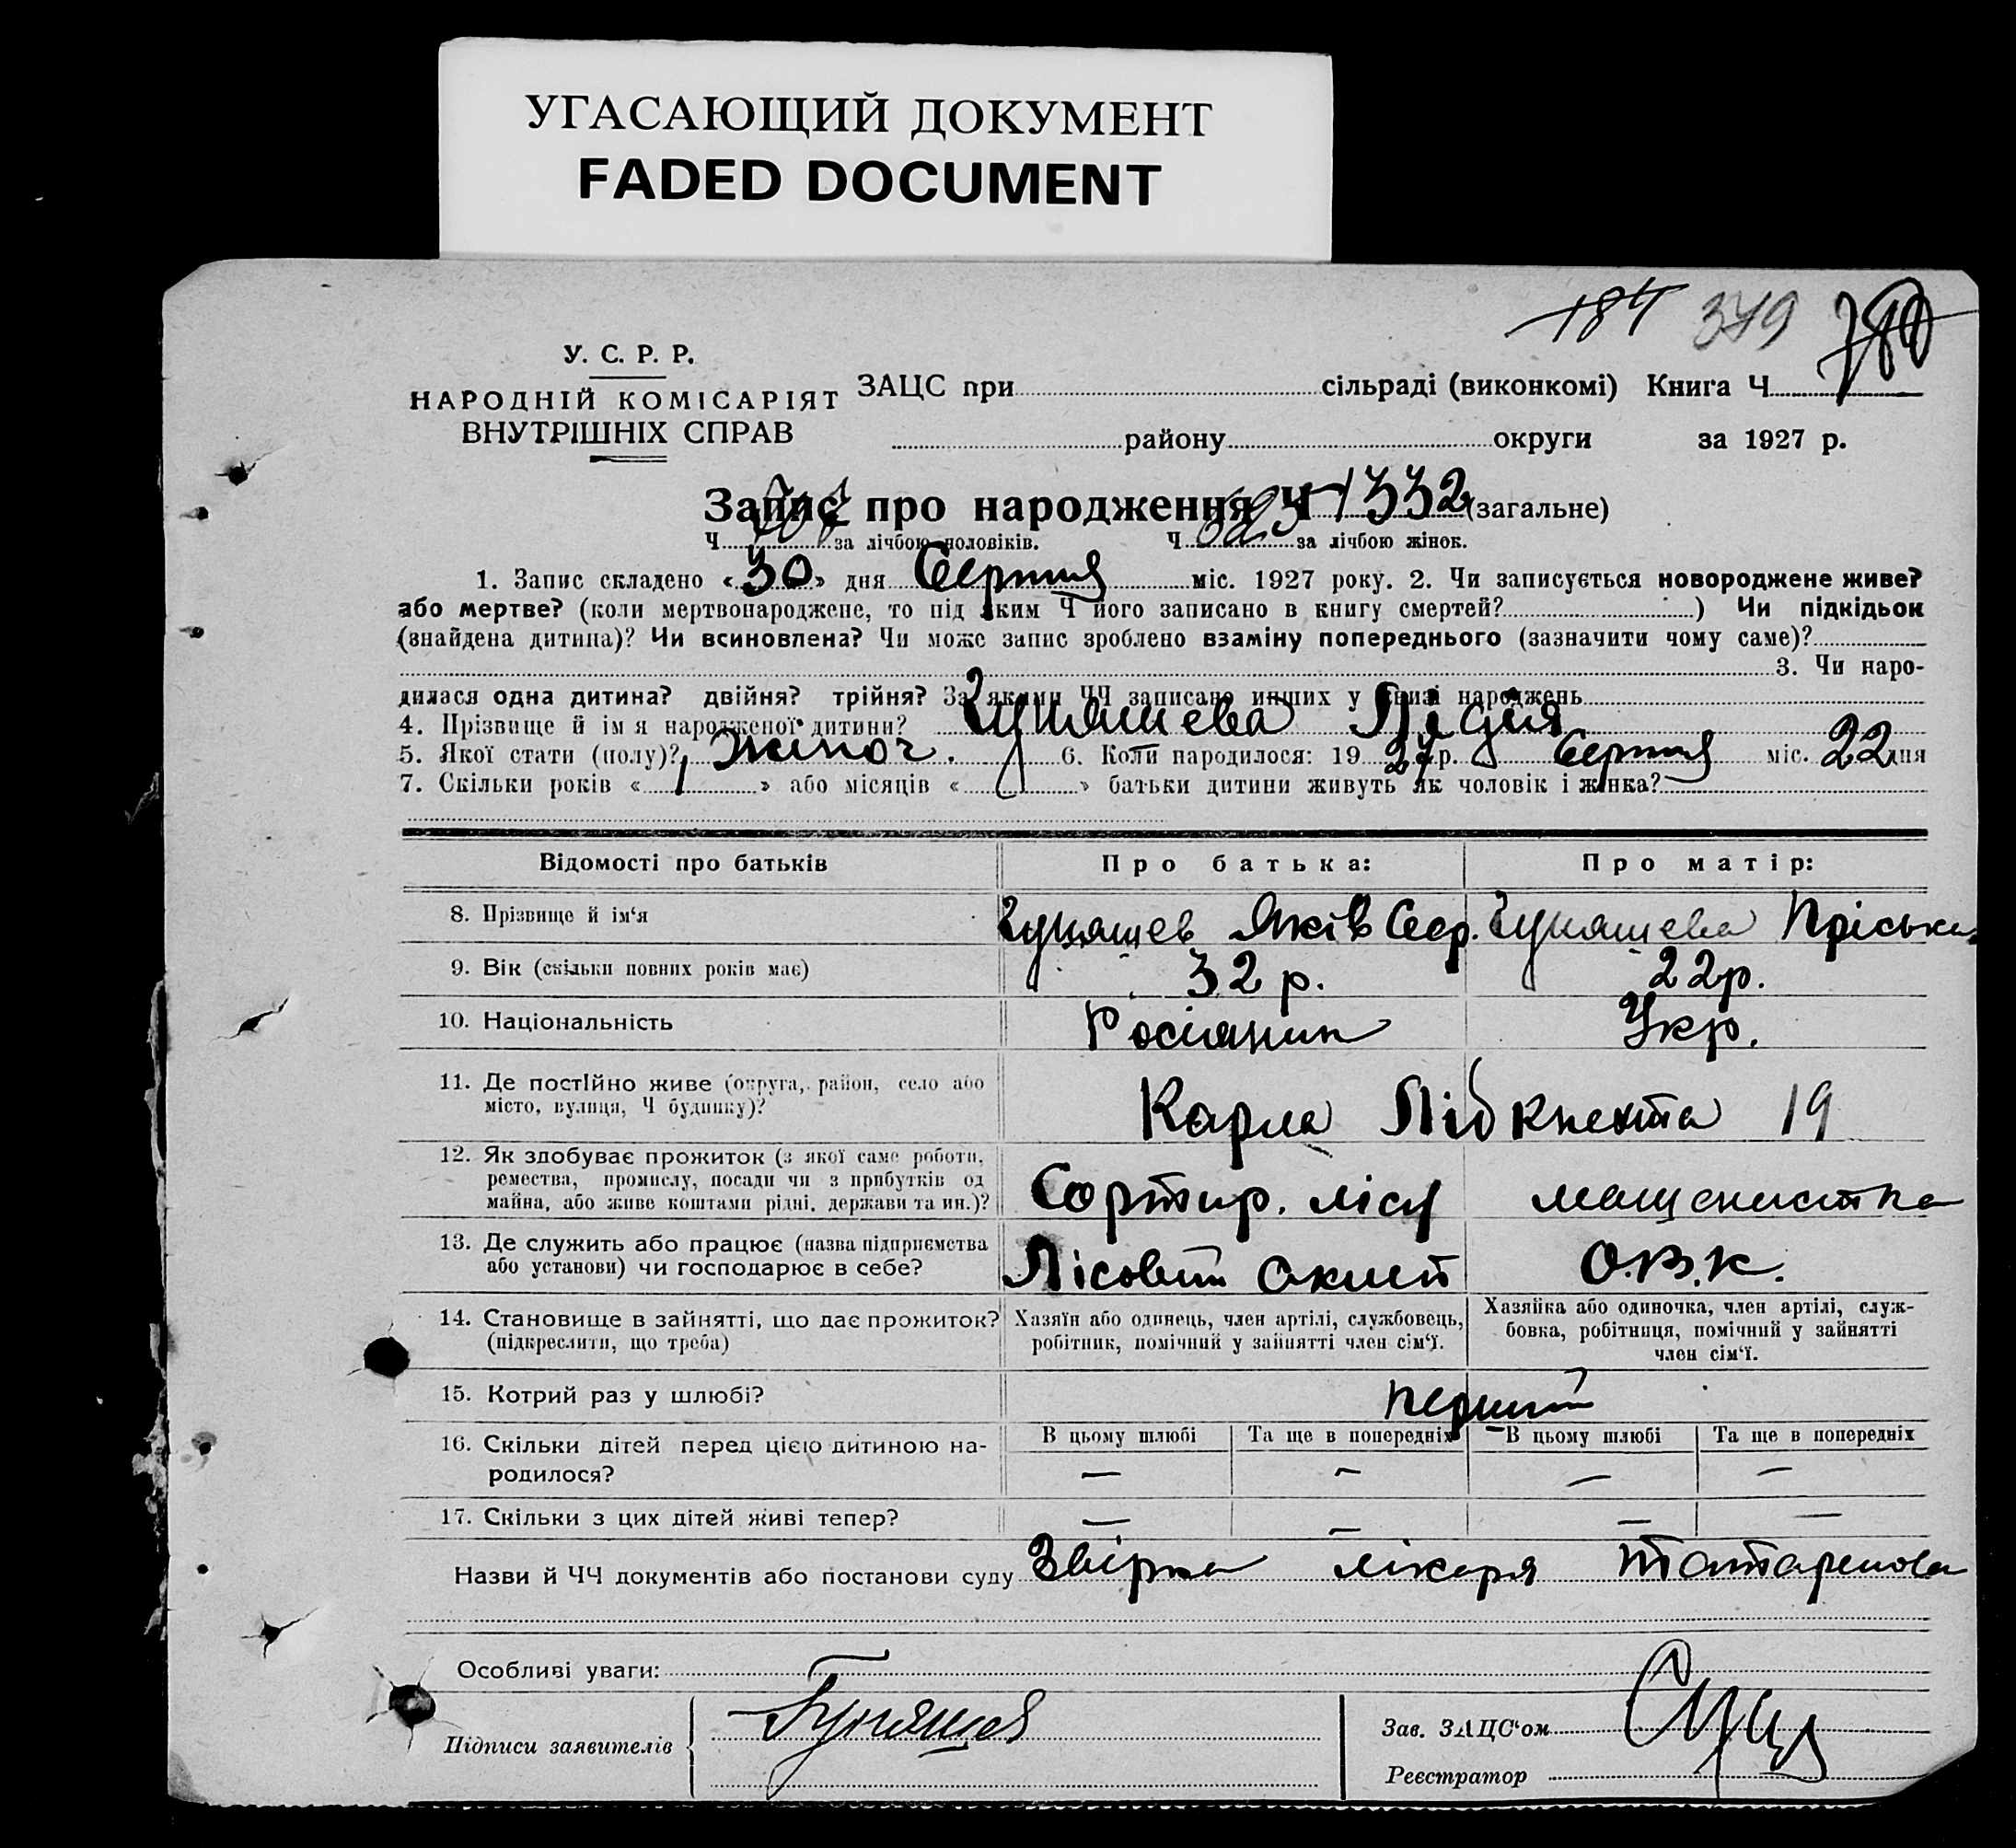 УГАСАЮЩИЙ ДОКУМЕНТ
FADED DOCUMENT
184 379
У. С. Р. Р.
НАРОДНІЙ КОМІСАРІЯТ
ВНУТРІШНІХ СПРАВ
ЗАЦС при сільраді (виконкомі) Книга Ч
району округи за 1927 р.
Запис про народження Ч 1332 (загальне)
Ч за лічбою чоловіків. Ч 625 за лічбою жінок.
1. Запис складено «30» дня Серпня міс. 1927 року. 2. Чи записується новороджене живе?
або мертве? (коли мертвонароджене, то під яким Ч його записано в книгу смертей? ) Чи підкідьок
(знайдена дитина)? Чи всиновлена? Чи може запис зроблено взаміну попереднього (зазначити чому саме)?
3. Чи наро-
дилася одна дитина? двійня? трійня? За якими ЧЧ записано инших у книзі народжень
4. Прізвище й ім я народженої дитини? Лідія
5. Якої статі (полу)? жіноч. 6. Коли народилося: 1927 р. Серпня міс. 22 дня
7. Скільки років « 1 » або місяців « » батьки дитини живуть як чоловік і жінка?
Відомості про батьків Про батька: Про матір:
8. Прізвище й ім‘я Яків Сер. Пріська
9. Вік (скільки повних років має) 32 р. 22 р.
10. Національність Росіянин Укр.
11. Де постійно живе (округа, район, село або
місто, вулиця, Ч будинку)? Карла Лібкнехта 19
12. Як здобуває прожиток (з якої саме роботи,
ремества, промислу, посади чи з прибутків од
майна, або живе коштами рідні, держави та ин.)? Сортир. лісу
13. Де служить або працює (назва підприємства
або установи) чи господарює в себе? Лісовий О.В.К.
14. Становище в зайнятті, що дає прожиток?
(підкреслити, що треба)
Хазяїн або одинець, член артілі, службовець,
робітник, помічний у зайнятті член сім‘ї.
Хазяйка або одиночка, член артілі, служ-
бовка, робітниця, помічний у зайнятті
член сім‘ї.
15. Котрий раз у шлюбі? перший
16. Скільки дітей перед цією дитиною на-
родилося?
В цьому шлюбі Та ще в попередніх В цьому шлюбі Та ще в попередніх
— — — —
17. Скільки з цих дітей живі тепер? — — — —
Назви й ЧЧ документів або постанови суду Звірка лікаря
Особливі уваги:
Підписи заявителів
Зав. ЗАЦС‘ом
Реєстратор